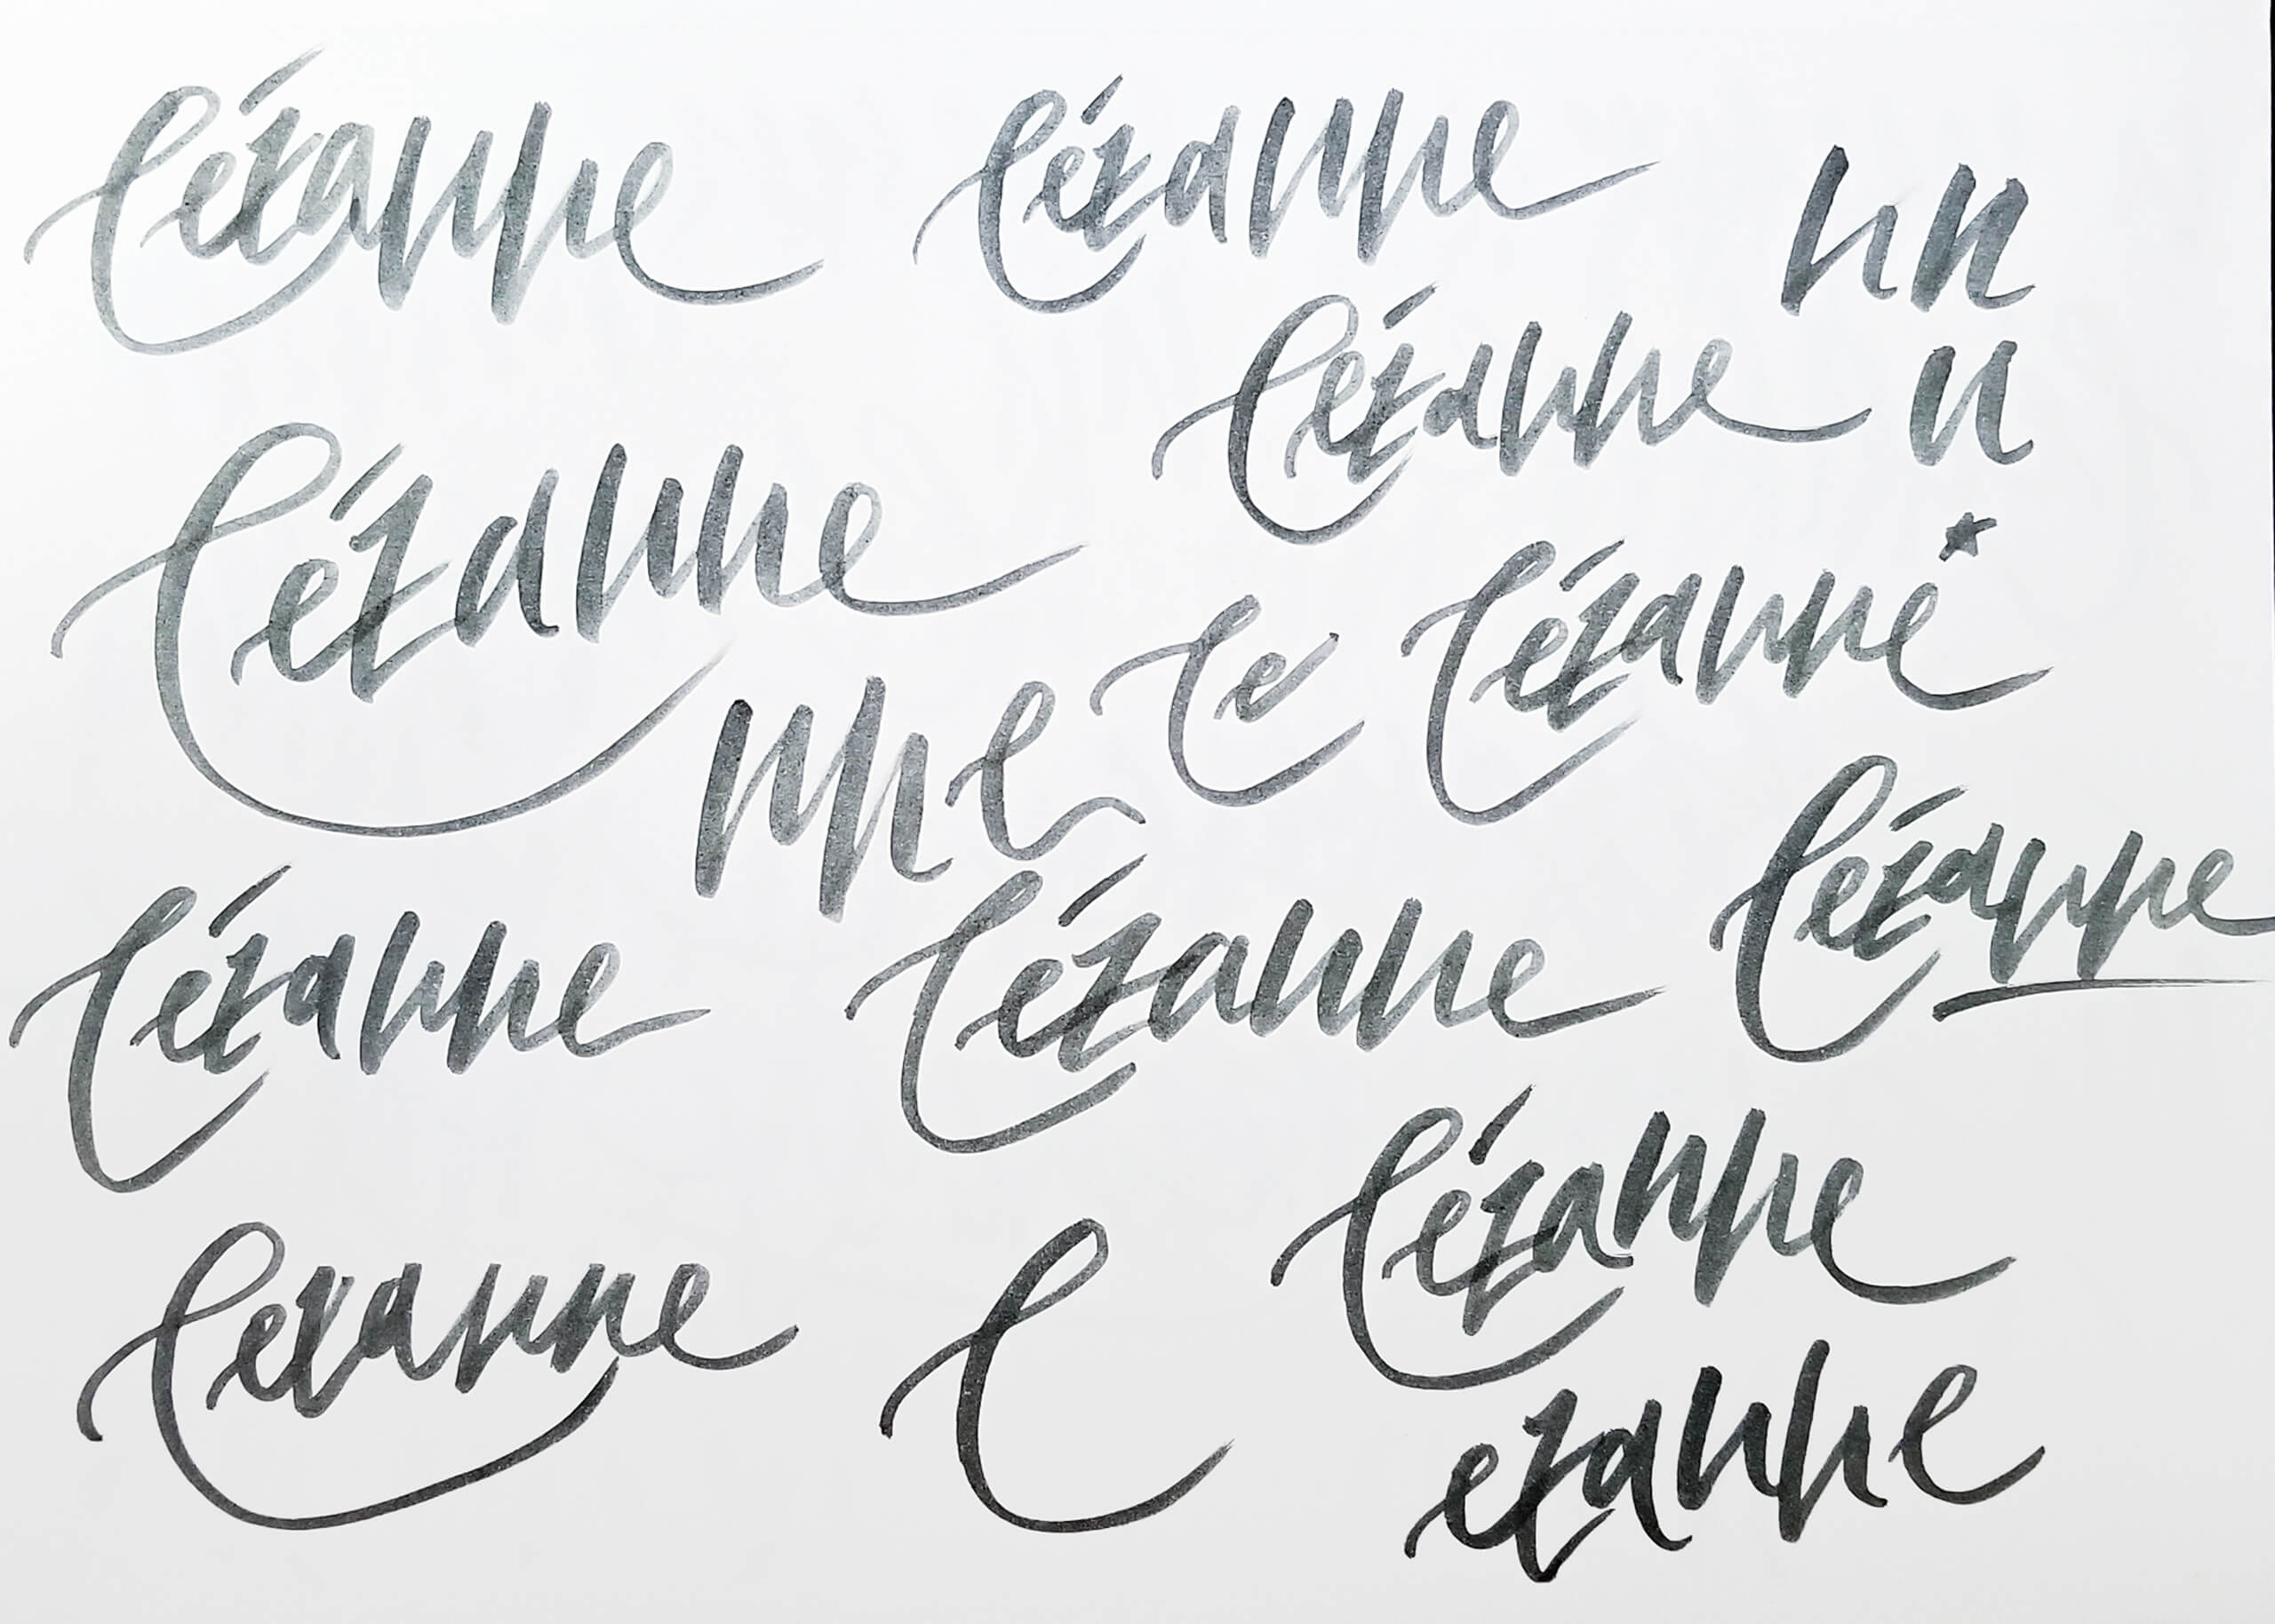 Cézanne
Cézanne
n n
Cézanne
n
Cézanne
Ce
Cézanne
nne
Cézanne
Cézanne
Cézanne
Cézanne
Cezanne
C
ezanne